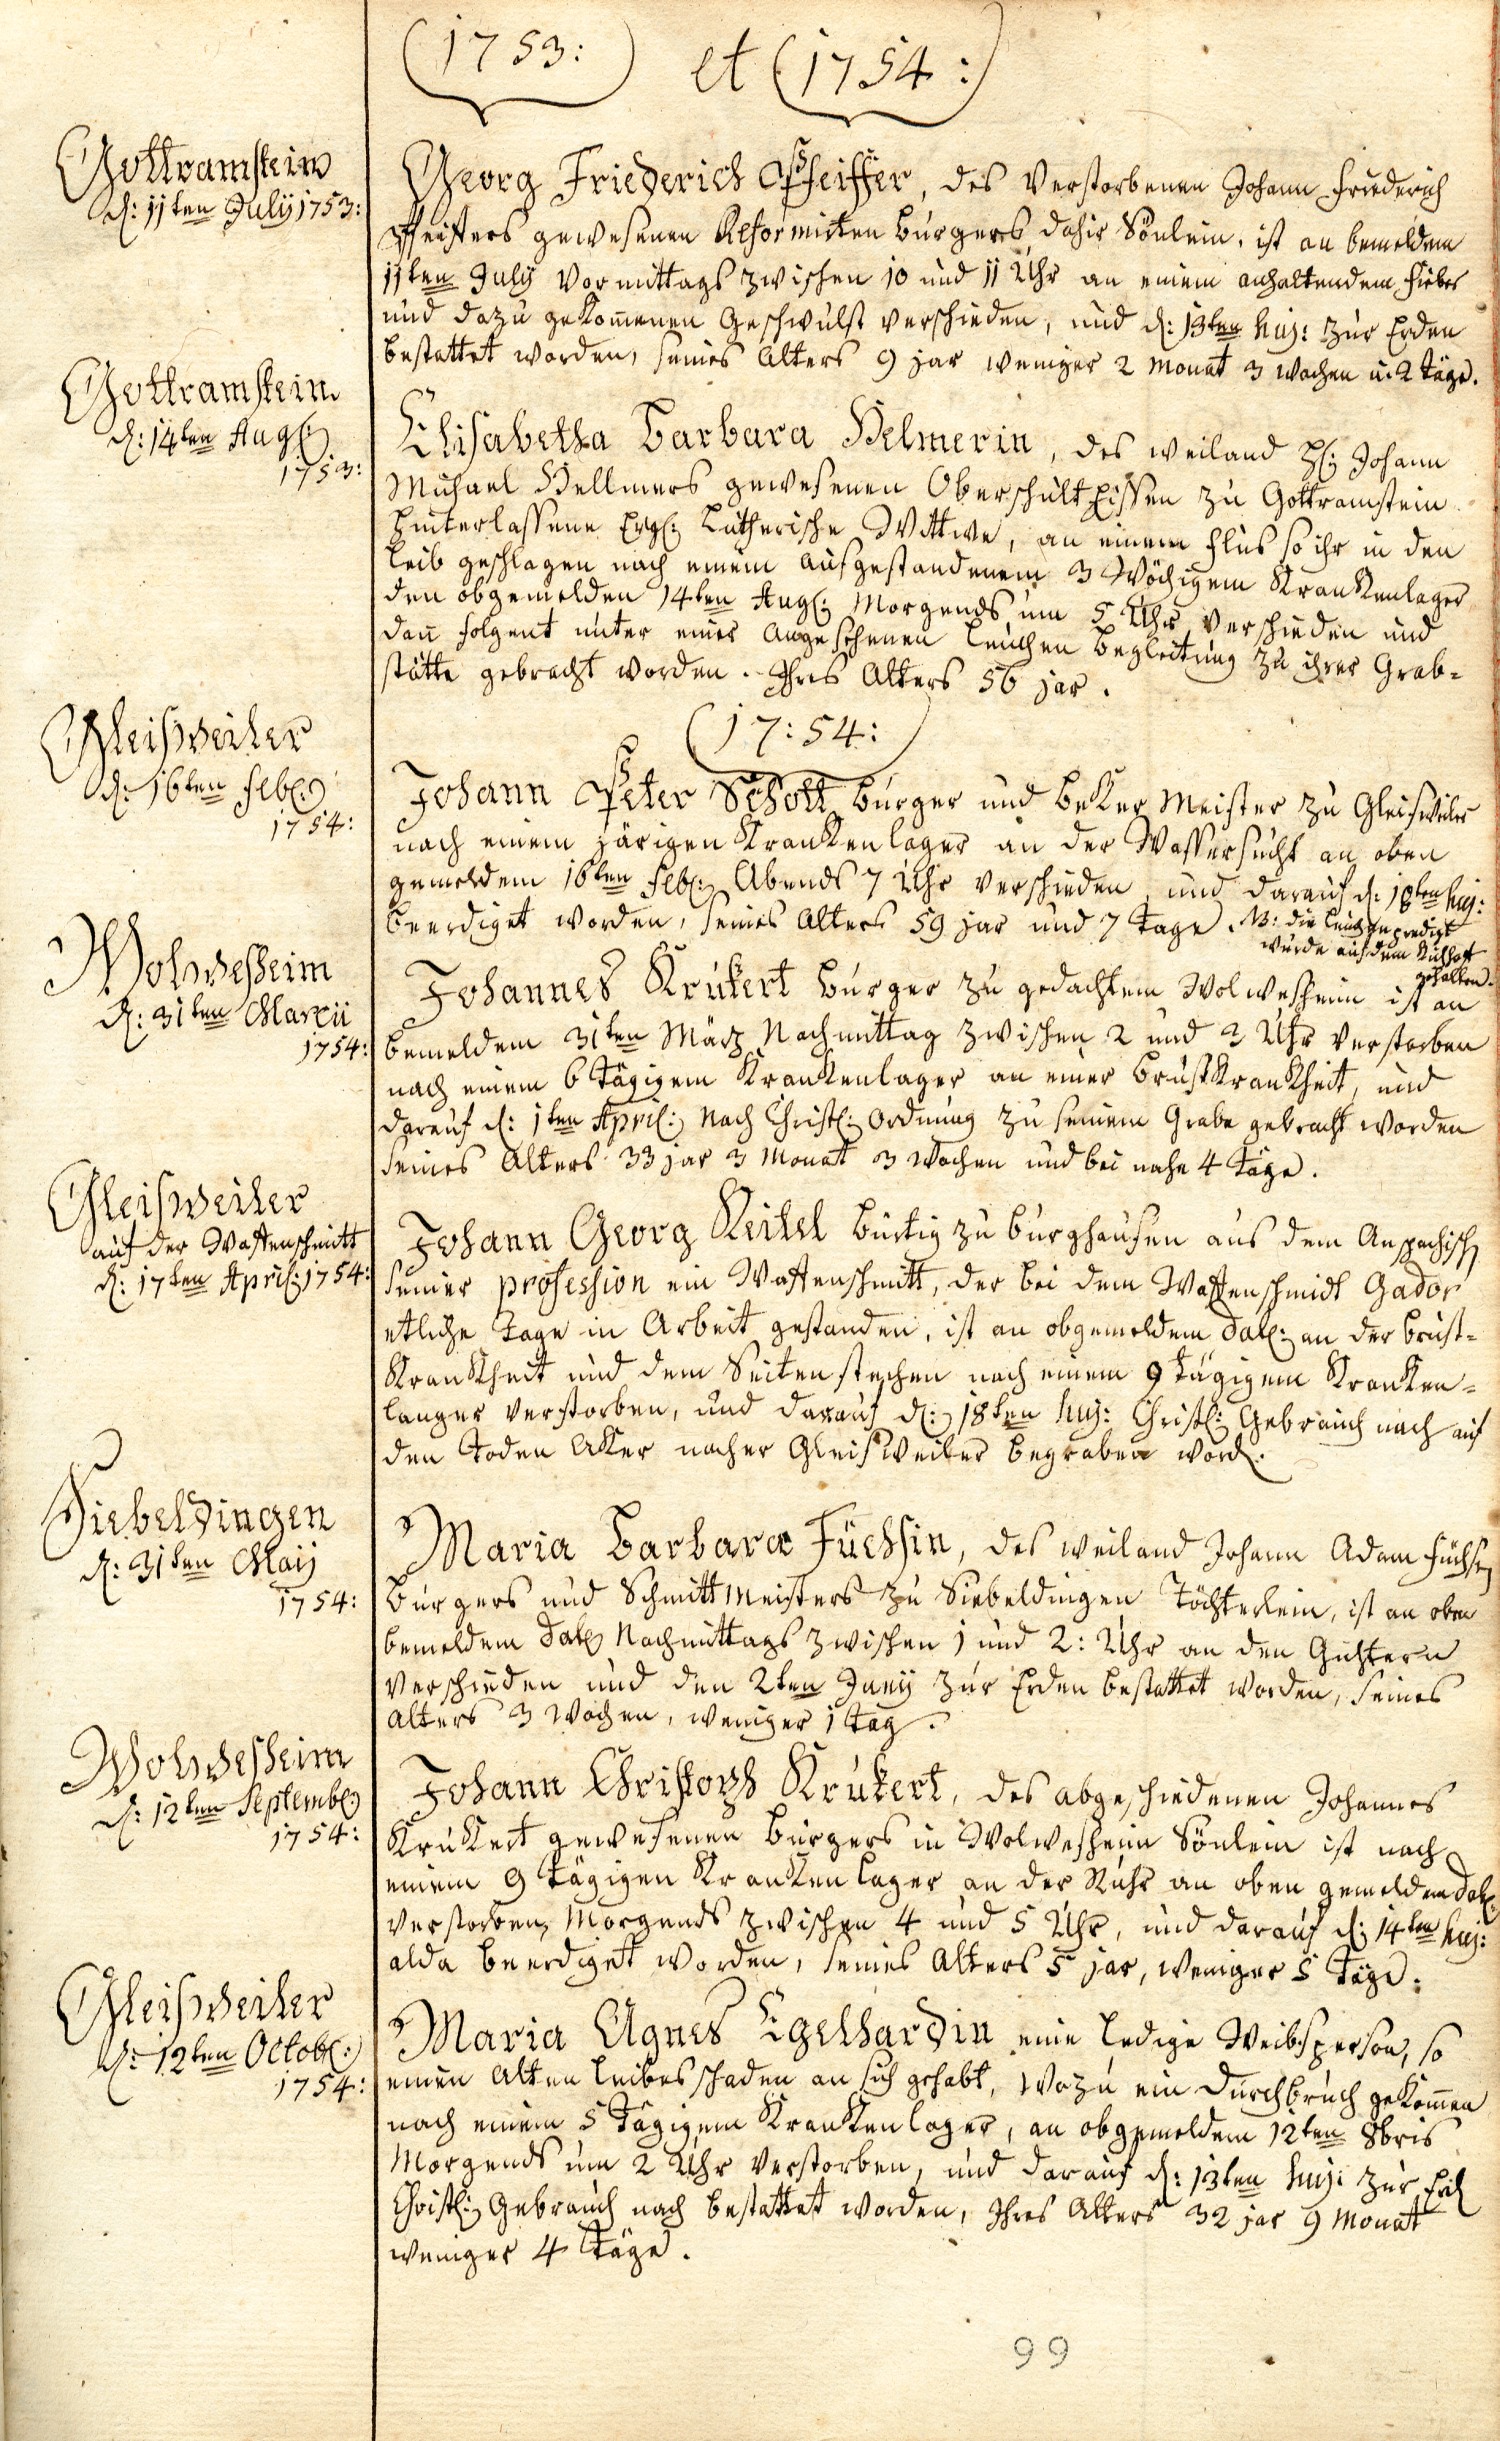 (1753:) et (1754:)
Gottramstein
d: 11ten Julÿ 1753:
Georg Friederich Pfeiffer, des verstorbenen Johann Friederich
Pfeiffers gewesenen Reformirten burgers dahir Sönlein, ist an bemeldem
11ten Julÿ Vormittags zwischen 10 und 11 Uhr an einem anhaltendem Fieber
und dazu gekom̄enen Geschwulst verschieden, und d: 13ten huj: zur Erden
bestattet worden, seines Alters 9 jar weniger 2 Monat 3 Wochen u. 2 Täge.
Gottramstein
d: 14ten Aug:
1753:
Elisabetha Barbara Helmerin, des weiland H: Johann
Michael Hellmers gewesenen Oberschultheissen zu Gottramstein
hinterlassene Evg: Lutherische Wittwe, an einem Flus so ihr in den
Leib geschlagen nach einem ausgestandenem 3 Wöchigem Krankenlager
den obgemelden 14ten Aug: Morgends um 5 Uhr verschieden und
dan̄ folgent unter einer angesehenen Leichen begleitung zu ihrer Grab-
stätte gebracht worden. Ihres Alters 56 jar.
(17:54:)
Gleisweiler
d: 16ten Feb:
1754:
Johann Peter Schott burger und beker Meister zu Gleisweiler
nach einem järigen Krankenlager an der Wassersucht an oben
gemeldem 16ten Feb: Abends 7 Uhr verschieden, und darauf d: 18ten huj:
beerdiget worden, seines Alters 59 jar und 7 Tage. NB: die Leichenpredigt
wurde auf dem Kirchhoff
gehalten.
Wolwesheim
d: 31ten Martii
1754:
Johannes Krükert burger zu gedachtem Wolwesheim ist an
bemeldem 31ten Märtz Nachmittag zwischen 2 und 3 Uhr verstorben
nach einem 6 Tägigem Krankenlager an einer brustkrankheit, und
darauf d: 1ten April: nach Christl: Ordnung zu seinem Grabe gebracht worden
seines Alters 33 jar 3 Monat 3 Wochen und bei nahe 4 Täge.
Gleisweiler
auf der Waffenschmitt
d: 17ten April: 1754:
Johann Georg Keitel bürtig zu burghausen aus dem Anspachisch
seiner profession ein Waffenschmitt, der bei dem Waffenschmidt Gador
etliche Tage in Arbeit gestanden, ist an obgemeldem dat: an der brust-
Krankheit und dem Seitenstechen nach einem 9 Tägigem Kranken-
langer verstorben, und darauf d: 18ten huj: Christl: Gebrauch nach auf
den Toden Aker nacher Gleisweiler begraben word:
Siebeldingen
d: 31ten Maij
1754:
Maria Barbara Füchsin, des weiland Johann Adam Füchsen
burgers und Schmittmeisters zu Siebeldingen Töchterlein, ist an oben
bemeldem dat: Nachmittags zwischen 1 und 2: Uhr an den Gichtern
verschieden und den 2ten Junÿ zur Erden bestattet worden, seines
alters 3 Wochen, weniger 1 Tag.
Wolwesheim
d: 12ten Septemb:
1754:
Johann Christoph Krükert, des abgeschiedenen Johannes
Krükert gewesenen burgers in Wolwesheim Sönlein ist nach
einem 9 Tägigen Krankenlager an der Ruhr an oben gemeldem dat:
verstorben, Morgends zwischen 4 und 5 Uhr, und darauf d: 14ten huj:
alda beerdiget worden, seines Alters 5 jar, weniger 5 Täge.
Gleisweiler
d: 12ten Octob:
1754:
Maria Agnes Egelhardin eine ledige Weibsperson, so
einen alten Leibesschaden an sich gehabt, wozu ein durchbruch gekom̄en
nach einem 5 Tägigem Krankenlager, an obgemeldem 12ten 8bris
Morgends um 2 Uhr verstorben, und darauf d: 13ten huj: zur Erd
Christl: Gebrauch nach bestattet worden, Ihres Alters 32 jar 9 Monat
weniger 4 Täge.
99